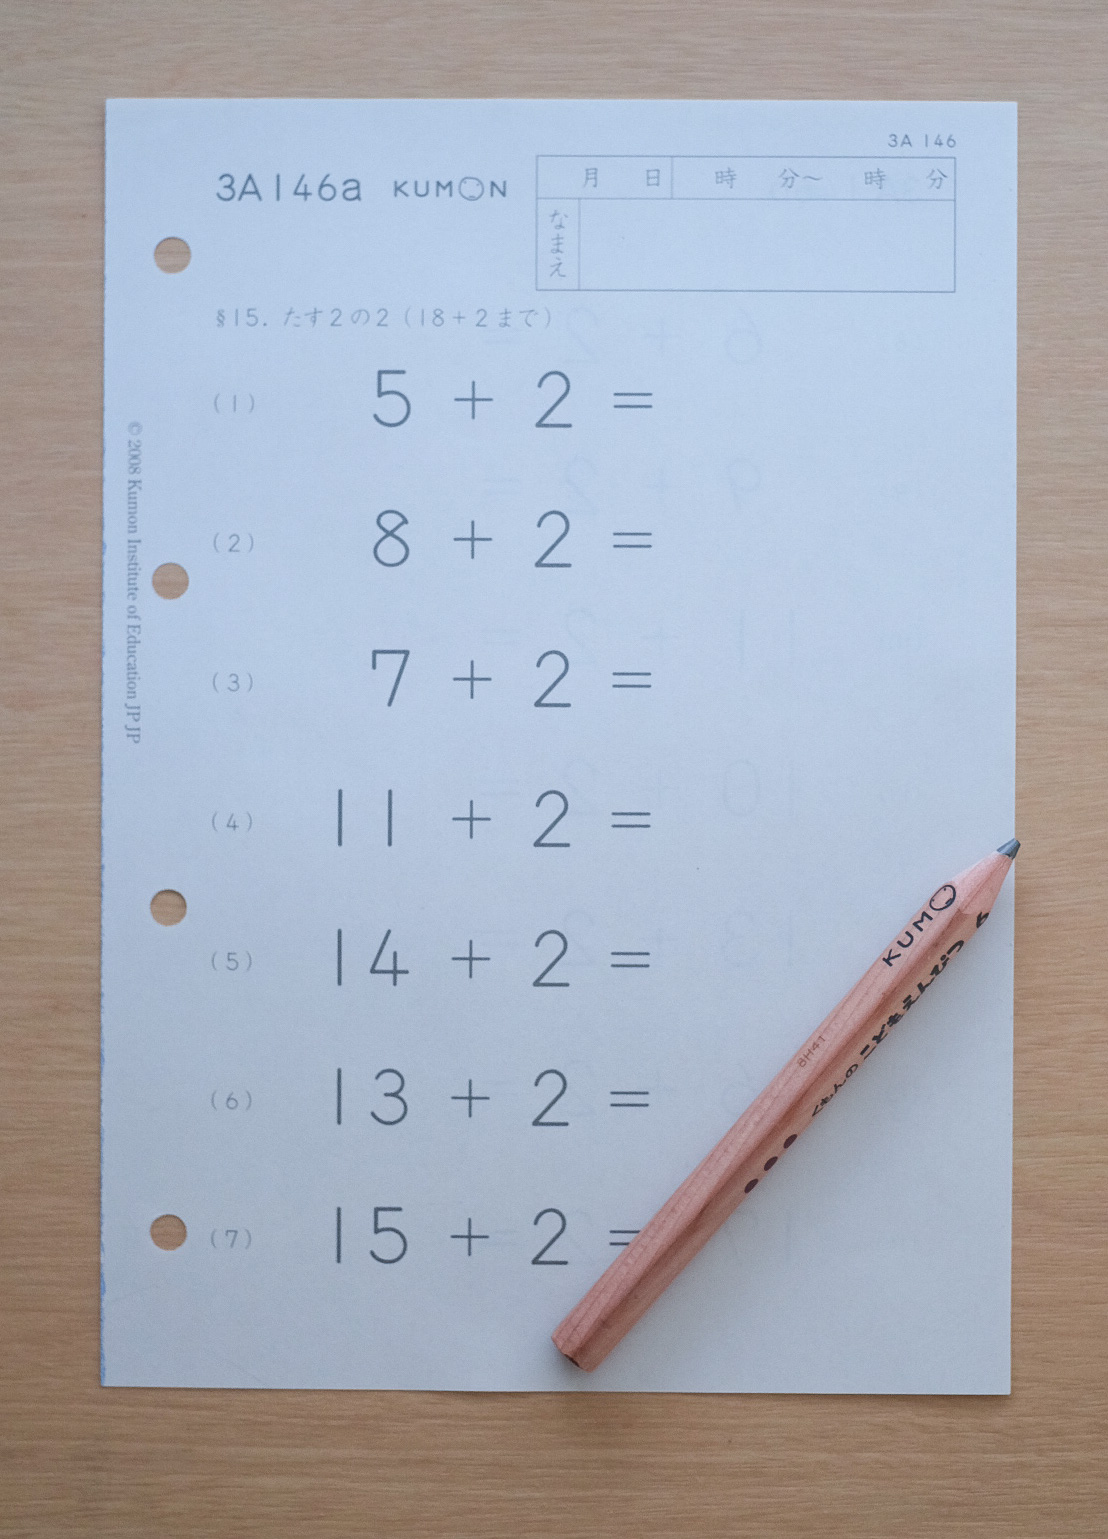 3A 146
3A146a KUMON
月 日 時 分～ 時 分
なまえ
§15. たす2の2（18+2まで）
(1) 5 + 2 =
(2) 8 + 2 =
(3) 7 + 2 =
(4) 11 + 2 =
(5) 14 + 2 =
(6) 13 + 2 =
(7) 15 + 2 =
© 2008 Kumon Institute of Education JP JP
KUMON
8H41
くもんの こどもえんぴつ 6